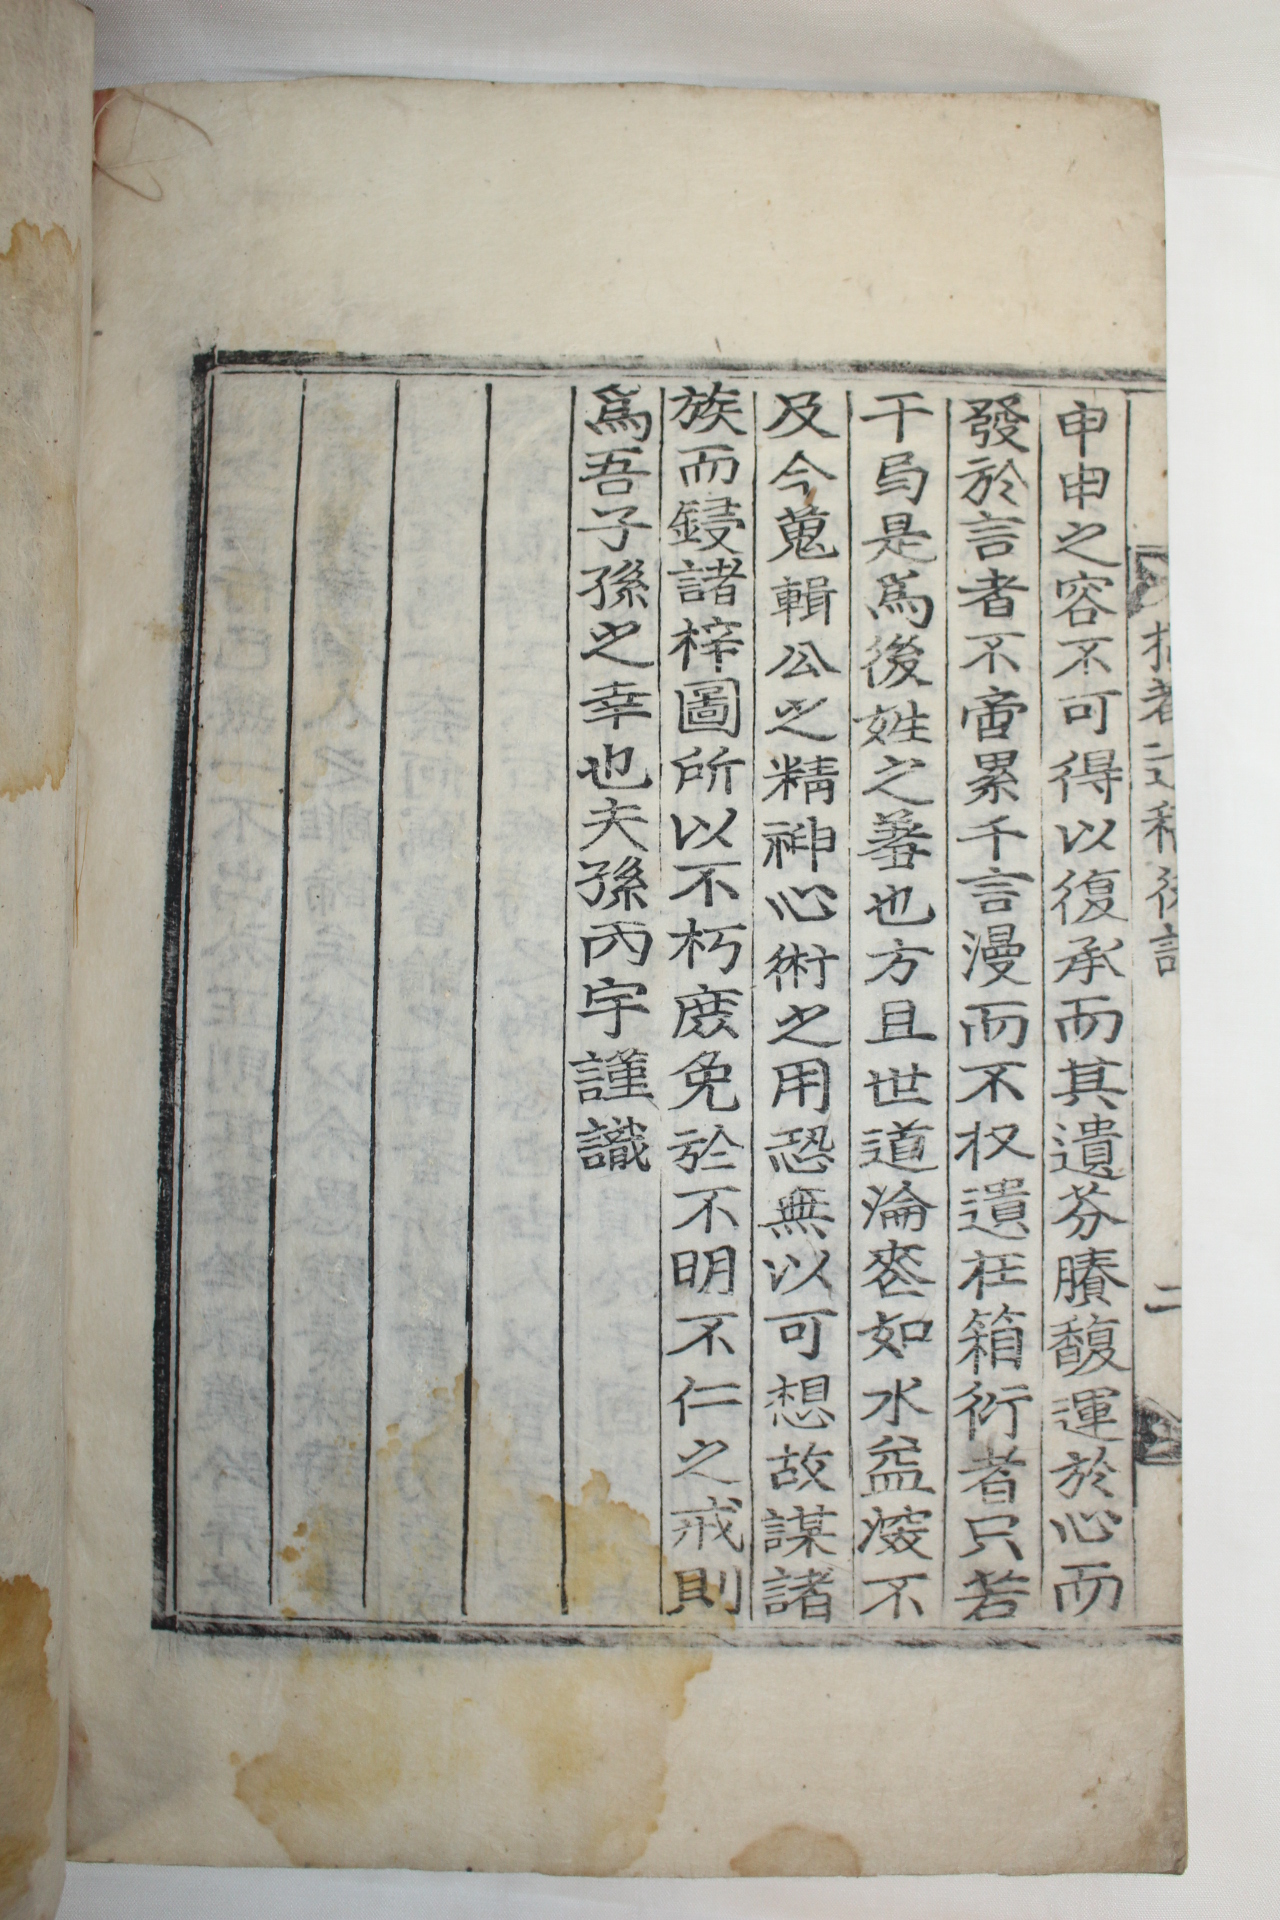 申申之容不可得以復承而其遺芬賸馥運於心而
發於言者不啻累千言漫而不收遺在箱衍者只若
干局是爲後姓之善也方且世道淪悉如水益深不
及今蒐輯公之精神心術之用恐無以可想故謀諸
族而鋟諸梓圖所以不朽庶免於不明不仁之戒則
爲吾子孫之幸也夫孫丙宇謹識
二